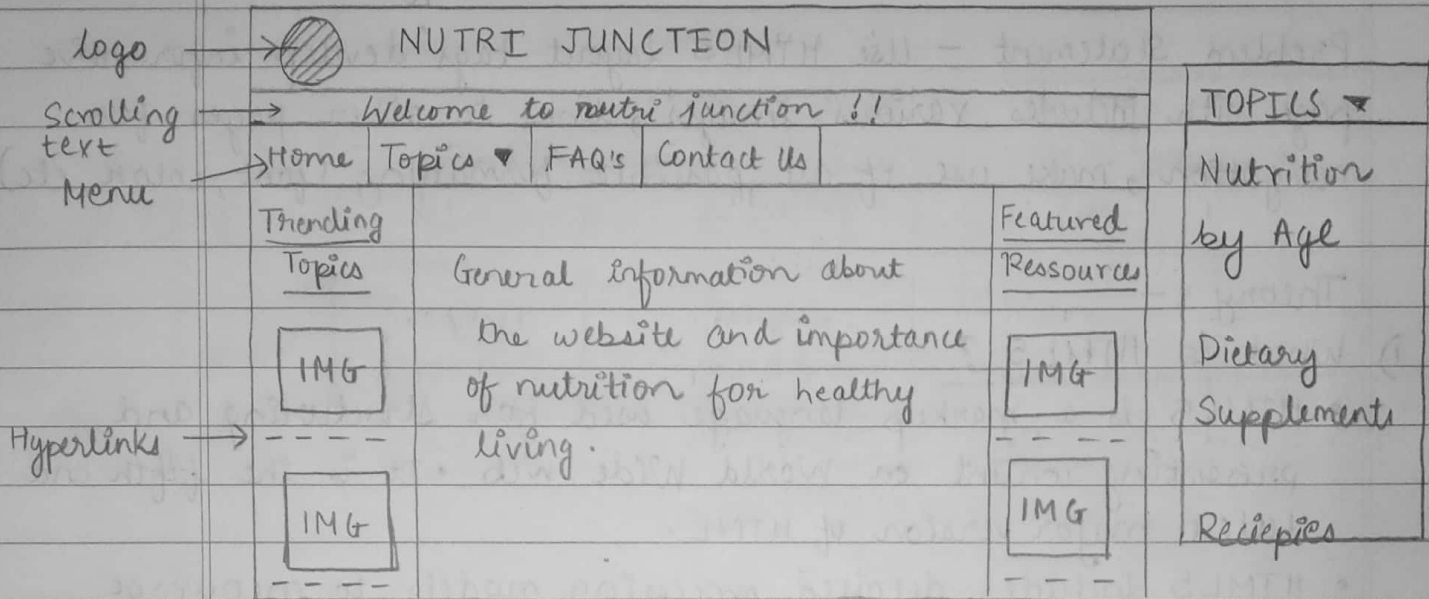 logo
NUTRI JUNCTION
Scrolling
text
Welcome to nutri junction !!
Menu
Home
Topics ▾
FAQ's
Contact Us
Trending
Topics
IMG
Hyperlinks
IMG
General information about
the website and importance
of nutrition for healthy
living.
Featured
Ressources
IMG
IMG
TOPICS ▾
Nutrition
by Age
Dietary
Supplements
Reciepies